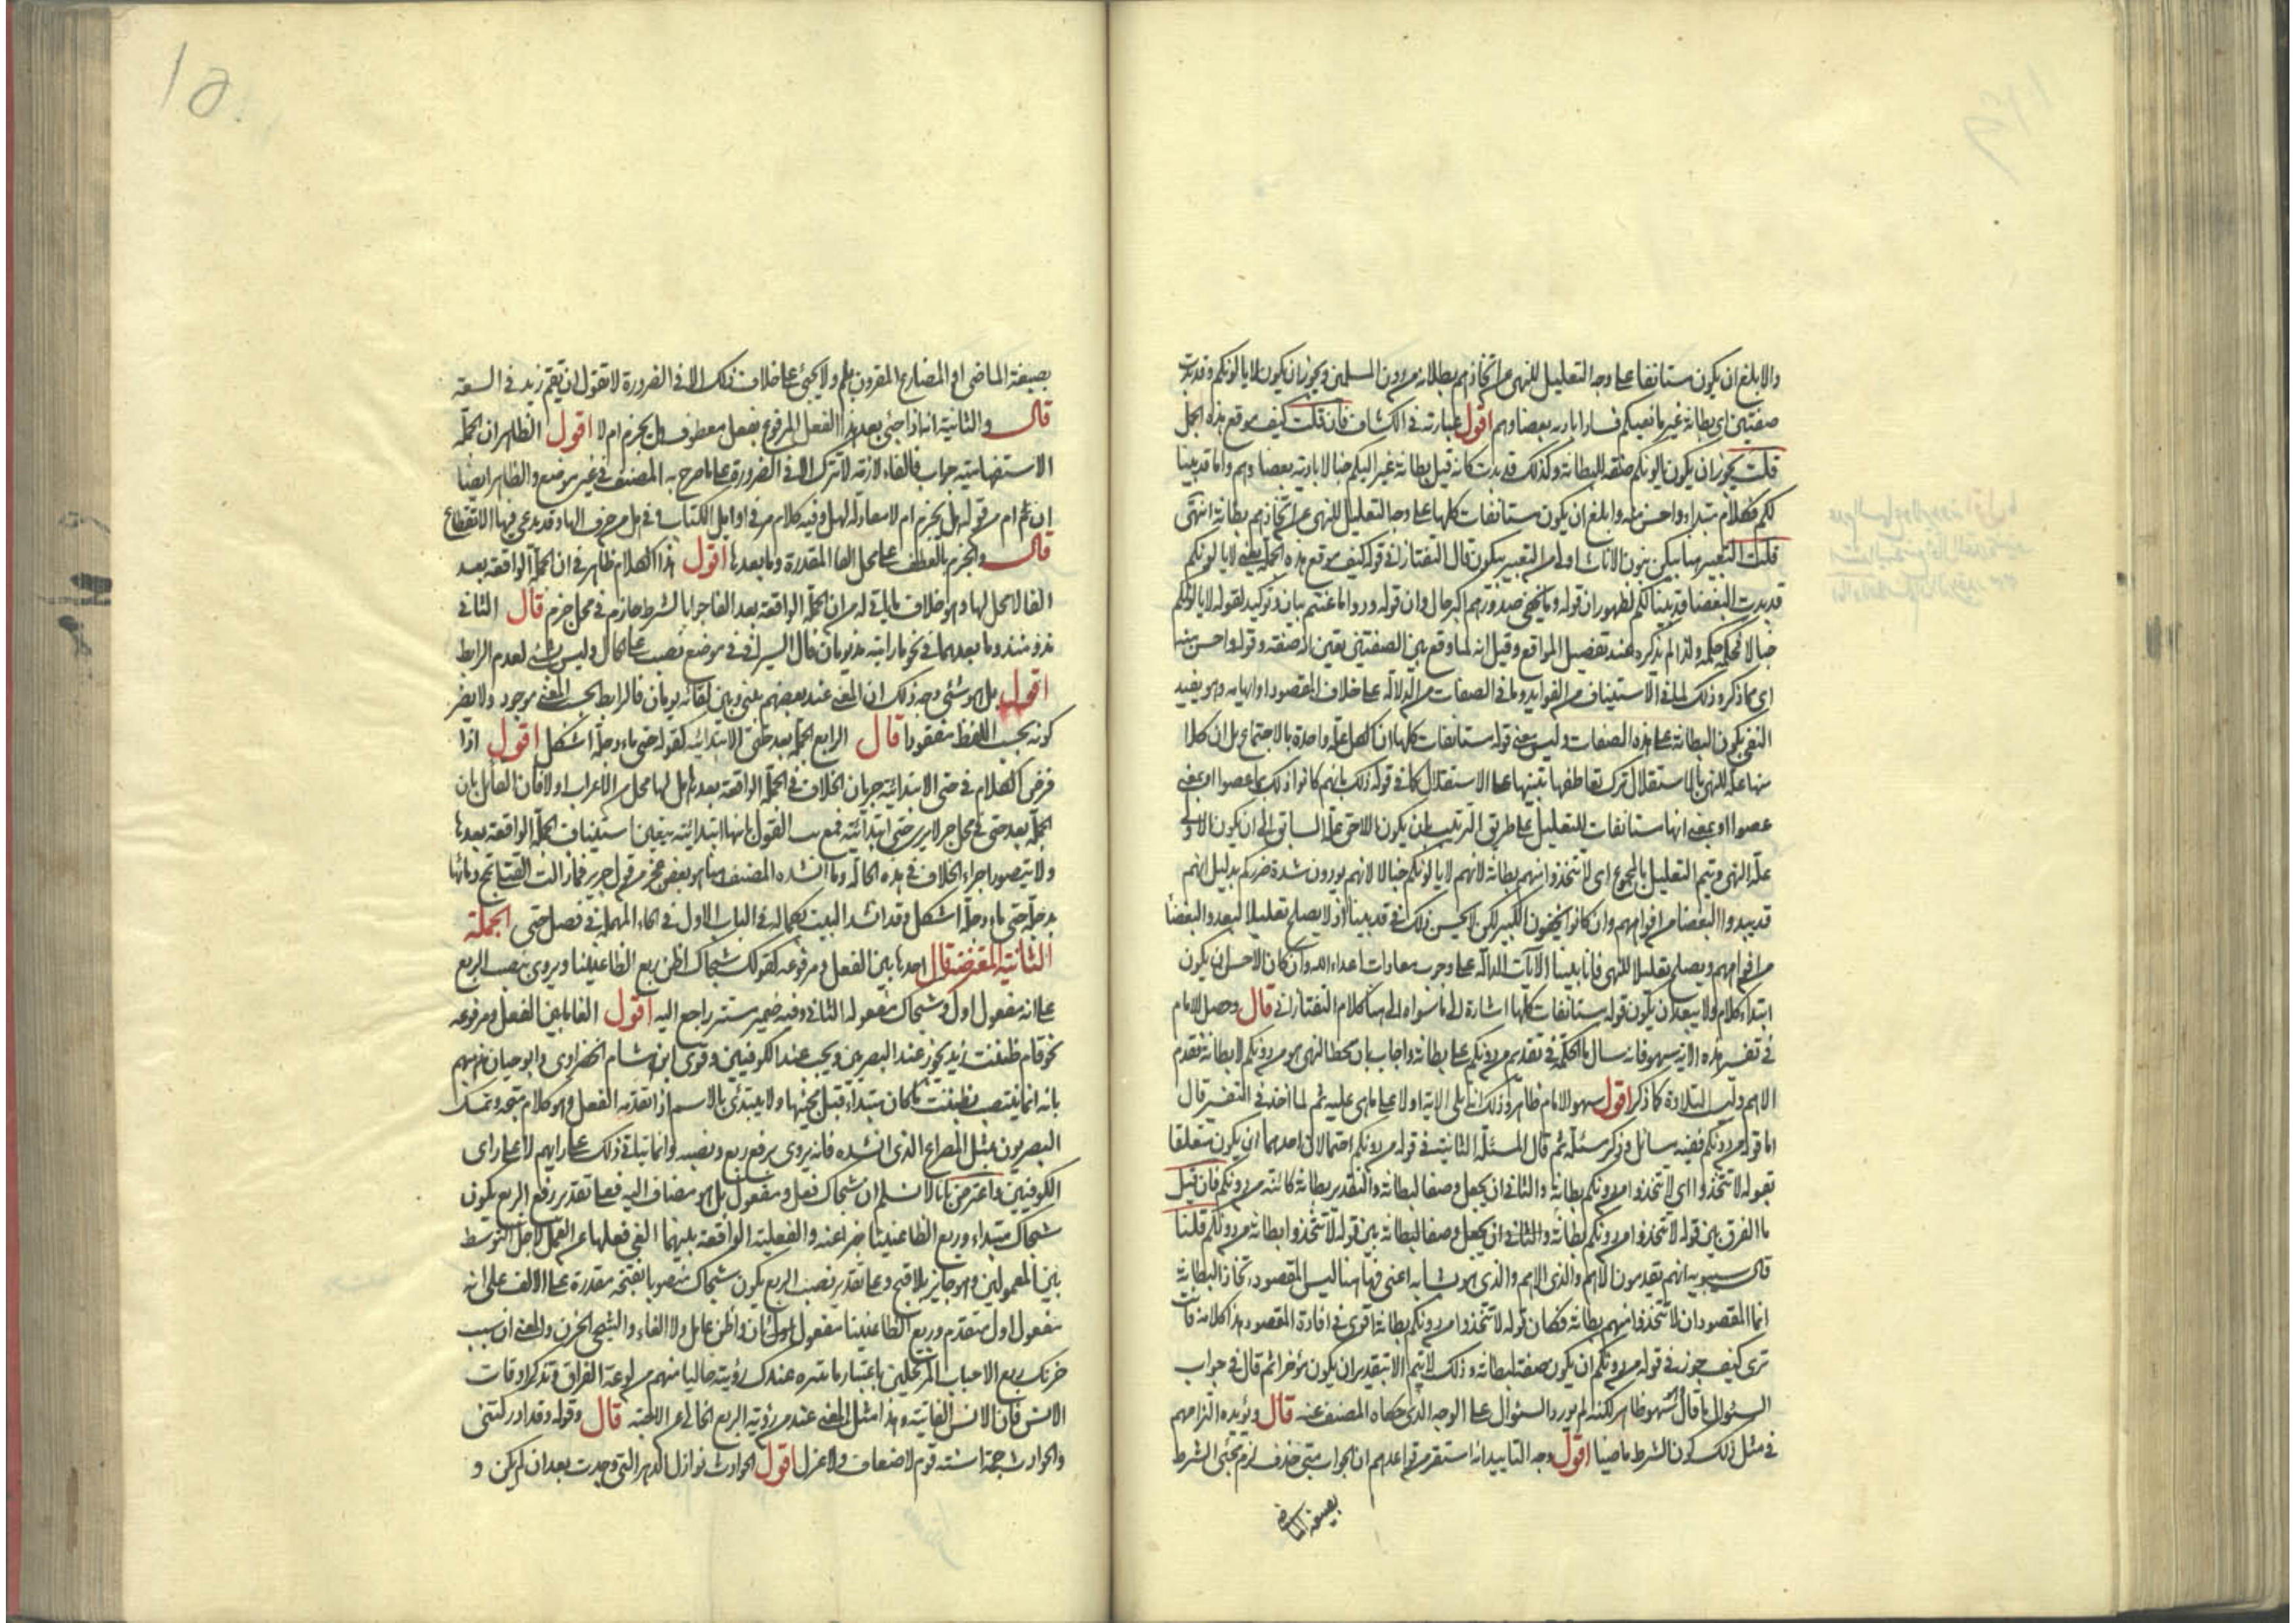 والابلغ ان يكون مستأنفا على وجه التعليل للنهي عن اتخاذهم بطانة من دون المسلمين ويجوز ان يكون لا يالونكم وقد بدت
صفتين اي بطانة غير مانعيكم فسادا بادية بغضاوهم اقول عبارته في الكشاف فان قلت كيف موقع هذه الجمل
قلت يجوز ان يكون لا يالونكم صفة للبطانة وكذلك قد بدت كانه قيل بطانة غير اليكم خبالا بادية بغضاوهم واما قد بينا
لكم فكلام مبتداء واحسن منه وابلغ ان يكون مستانفات كلها على وجه التعليل للنهي عن اتخاذهم بطانة انتهى
قلت التعبير هنا بيكن بنون الاناث اولى من التعبير بيكون قال التفتازاني قوله كيف موقع هذه الجمل يعني لا يالونكم
قد بدت البغضا قد بينا لكم لظهور ان قوله وما تخفي صدورهم اكبر حال وان قوله ودوا ما عنتم بيان وتوكيد لقوله لا يالونكم
خبالا حكمه حكمه ولذا لم يذكره عند تفصيل المواقع وقيل انه لما وقع بين الصفتين تعين انه صفة وقوله واحسن منه
اي مما ذكر وذلك لما في الاستيناف من الفوايد وما في الصفات من الدلالة على خلاف المقصود او ايهامه وهو تقييد
النهي بكون البطانة على هذه الصفات وليس معنى قوله مستانفات كلها ان الكل علة واحدة بالاجتماع بل ان كلا
منها علة للنهي بالاستقلال ترك تعاطفها تنبيها على الاستقلال كما في قوله ذلك بانهم كانوا ذلك بما عصوا او بمعنى
عصوا او بمعنى انها مستانفات للتعليل على طريق الترتيب بان يكون اللاحق علة السابق الى ان يكون الاول
علة النهي ويتم التعليل بالمجموع اي لا تتخذوا منهم بطانة لانهم لا يالونكم خبالا لانهم يودون شدة ضرركم بدليل انهم
قد يبدوا البغضا من افواههم وان كانوا يخفون الكثير لكن لا يحسن ذلك في قد بينا اذ لا يصلح تعليلا لبدو البغضا
من افواههم ويصلح تعليلا للنهي فانا بينا الآيات الدالة على وجوب معادات اعداء الله وان كان الاحسن ان يكون
ابتداء كلام ولا يبعد ان يكون قوله مستانفات كلها اشارة الى ما سواه الى هنا كلام التفتازاني قال وحصل للامام
في تفسير هذه الآية سهو فانه سال ما الحكمة في تقديم من دونكم على بطانة واجاب بان محط النهي هو من دونكم لا بطانة فقدم
الاهم وليست التلاوة كما ذكر اقول سهو الامام ظاهر وذلك انه تلى الآية اولا على ما هي عليه ثم لما اخذ في التفسير قال
اما قوله من دونكم ففيه مسائل وذكر مسئلة ثم قال المسئلة الثانية في قوله من دونكم احتمالان احدهما ان يكون متعلقا
بقوله لا تتخذوا اي لا تتخذوا من دونكم بطانة والثاني ان يجعل وصفا لبطانة والتقدير بطانة كائنة من دونكم فان قيل
ما الفرق بين قوله لا تتخذوا من دونكم بطانة والثاني ان يجعل وصفا لبطانة بين قوله لا تتخذوا بطانة من دونكم قلنا
قال سيبويه انهم يقدمون الاهم والذي الاهم والذي هو بشانه اعنى فهاهنا ليس المقصود اتخاذ البطانة
انما المقصود ان لا تتخذوا منهم بطانة فكان قوله لا تتخذوا من دونكم بطانة اقوى في افادة المقصود هذا كلامه فانت
ترى كيف جوز في قوله من دونكم ان يكون صفة لبطانة وذلك لا يتم الا بتقدير ان يكون مؤخرا ثم قال في جواب
السئوال ما قال فسهوه ظاهر لكنه لم يورد السئوال على الوجه الذي حكاه المصنف عنه قال ويؤيده التزامهم
في مثل ذلك كون الشرط ماضيا اقول وجه التاييد انه استقر من قواعدهم ان الجواب متى حذف لزم مجئ الشرط
بصيغة الماضي
بصيغة الماضي او المضارع المقرون بلم ولا يجئ على خلاف ذلك الا في الضرورة لا تقول ان يقم زيد في السعة
قال والثانية انه اذا جئ بعد هذا الفعل المرفوع بفعل معطوف هل يجزم ام لا اقول الظاهر ان الجملة
الاستفهامية جواب فالفاء لازمة لا تترك الا في الضرورة على ما صرح به المصنف في غير موضع والظاهر ايضا
ان ثم ام من قوله هل يجزم ام لا معادلة لهل وفيه كلام مر في اوايل الكتاب وفي هل من حرف الهاء وقد يدعى فيها الانقطاع
قال والجزم بالعطف على محل الفا المقدرة وما بعدها اقول هذا الكلام ظاهر في ان الجملة الواقعة بعد
الفا لا محل لها وهو خلاف ما ياتي له من ان الجملة الواقعة بعد الفا جوابا لشرط جازم في محل جزم قال الثاني
مذ ومنذ وما بعدهما في نحو ما رايته مذ يومان قال السيرافي في موضع نصب على الحال وليس بشئ لعدم الرابط
اقول بل هو شئ وجه ذلك ان المعنى عند بعضهم بيني وبين لقائه يومان فالرابط بحسب المعنى موجود ولا يضر
كونه بحسب اللفظ مفقودا قال الرابع الجملة بعد حتى الابتدائية كقوله حتى ماء دجلة اشكل اقول اذا
فرض الكلام في حتى الابتدائية جريان الخلاف في الجملة الواقعة بعدها هل لها محل من الاعراب اولا فان القائل بان
الجملة بعد حتى في محل جر لا يرى حتى ابتدائية فمع القول بانها ابتدائية يتعين استيناف الجملة الواقعة بعدها
ولا يتصور اجراء الخلاف في هذه الحالة وما انشده المصنف هنا هو بعض عجز من قول جرير فما زالت القتلى تمج دمائها
بدجلة حتى ماء دجلة اشكل وقد انشد البيت بكماله في الباب الاول في الحاء المهملة في فصل حتى الجملة
الثانية المعترضة قال احدها بين الفعل ومرفوعه كقولك شجاك اظن ربع الظاعنينا ويروى بنصب الربع
على انه مفعول اول وشجاك مفعوله الثاني وفيه ضمير مستتر راجع اليه اقول الغا ما بين الفعل ومرفوعه
نحو قام ظننت زيد يجوز عند البصريين ويجب عند الكوفيين وقوى ابن هشام الخضراوي وابو حيان مذهبهم
بانه انما ينتصب بظننت ما كان مبتداء قبل مجيئها ولا يبتدئ بالاسم اذا تقدمه الفعل وهو كلام متجه وتمسك
البصريون بمثل المصراع الذي انشده فانه يروى برفع ربع ونصبه وانما يتاتى ذلك على رايهم لا على راى
الكوفيين واعترض بانا لا نسلم ان شجاك فعل ومفعول بل هو مضاف اليه فعلى تقدير رفع الربع يكون
شجاك مبتداء وربع الظاعنينا خبرا عنه والفعلية الواقعة بينهما الغى فعلها عن العمل لاجل التوسط
بين المعمولين وهو جايز بلا قبح وعلى تقدير نصب الربع يكون شجاك منصوبا بفتحة مقدرة على الالف على انه
مفعول اول متقدم وربع الظاعنينا مفعول ثان واظن عامل ولا الغاء والشجى الحزن والمعنى ان سبب
حزنك ربع الاحباب المرتحلين باعتبار ما تثيره عندك رؤيته خاليا منهم من لوعة الفراق وتذكر اوقات
الانس فان الانس الفائتة وهذا مثل المعنى عند من رؤية الربع الخالي عن الاحبة قال وقوله وقد ادركتني
والحوادث جمة اسنة قوم لا ضعاف ولا عزل اقول الحوادث نوازل الدهر التي وجدت بعد ان لم يكن و